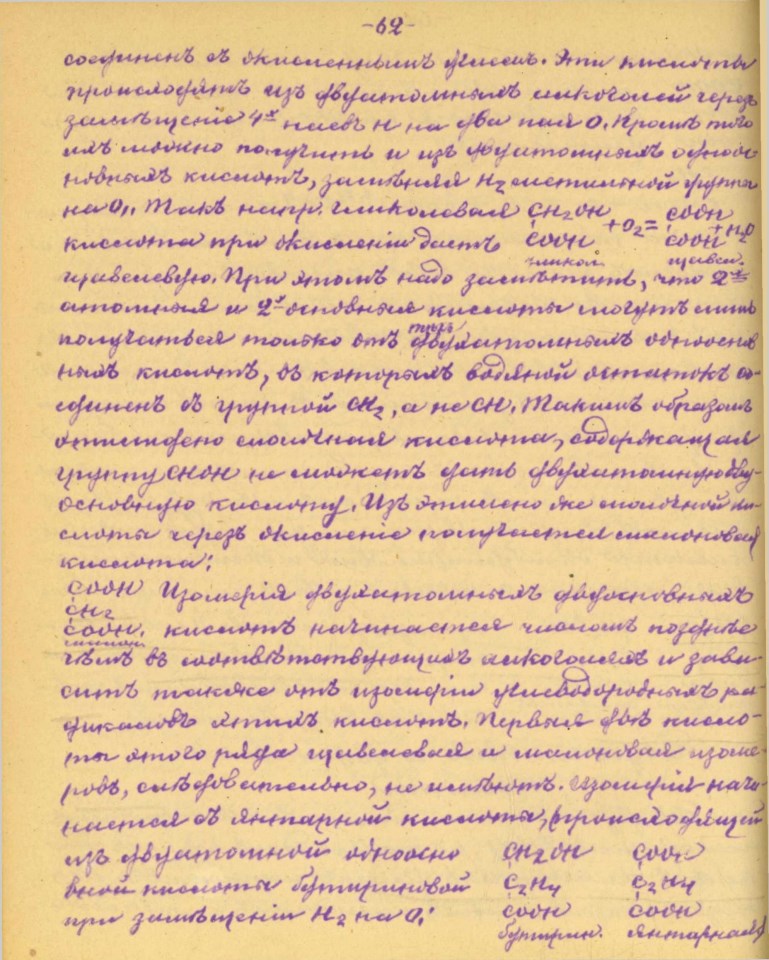 -62-
соединенъ съ окисленнымъ углемъ. Эти кислоты
происходятъ изъ двуатомныхъ алкоголей черезъ
замѣщеніе 4х паевъ H на два пая O. Кромѣ того
ихъ можно получить и изъ двуатомныхъ одноос-
новныхъ кислотъ, замѣняя H2 метильной группы
на O,. Такъ напр. гликолевая CH2OH + O2 = COOH + H2O
кислота при окисленіи дастъ COOH COOH
гликол. щавел.
щавелевую. При этомъ надо замѣтить, что 2х
атомныя и 2х основныя кислоты могутъ лишь
получаться только отъ тѣхъ двухатомныхъ однооснов
ныхъ кислотъ, въ которыхъ водяной остатокъ со-
единенъ съ группой CH2, а не CH. Такимъ образомъ
этилидено молочная кислота, содержащая
группу CHOH не можетъ дать двухатомную дву-
основную кислоту. Изъ этилено же молочной ки-
слоты черезъ окисленіе получается малоновая
кислота:
COOH Изомерія двухатомныхъ двуосновныхъ
CH2
COOH. кислотъ начинается членомъ позднѣе
малон.
чѣмъ въ соотвѣтствующихъ алкоголяхъ и зави-
ситъ также отъ изомеріи углеводородныхъ ра-
дикаловъ этихъ кислотъ. Первыя двѣ кисло-
ты этого ряда щавелевая и малоновая изоме-
ровъ, слѣдовательно, не имѣютъ. Изомерія начи-
нается съ янтарной кислоты, происходящей
изъ двуатомной одноосно CH2OH COOH
вной кислоты бутириновой C2H4 C2H4
при замѣщеніи H2 на O: COOH COOH
бутирин. янтарная